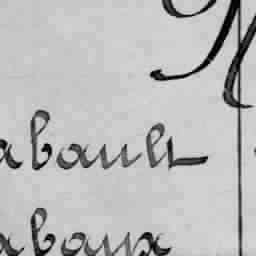 abault
abaux